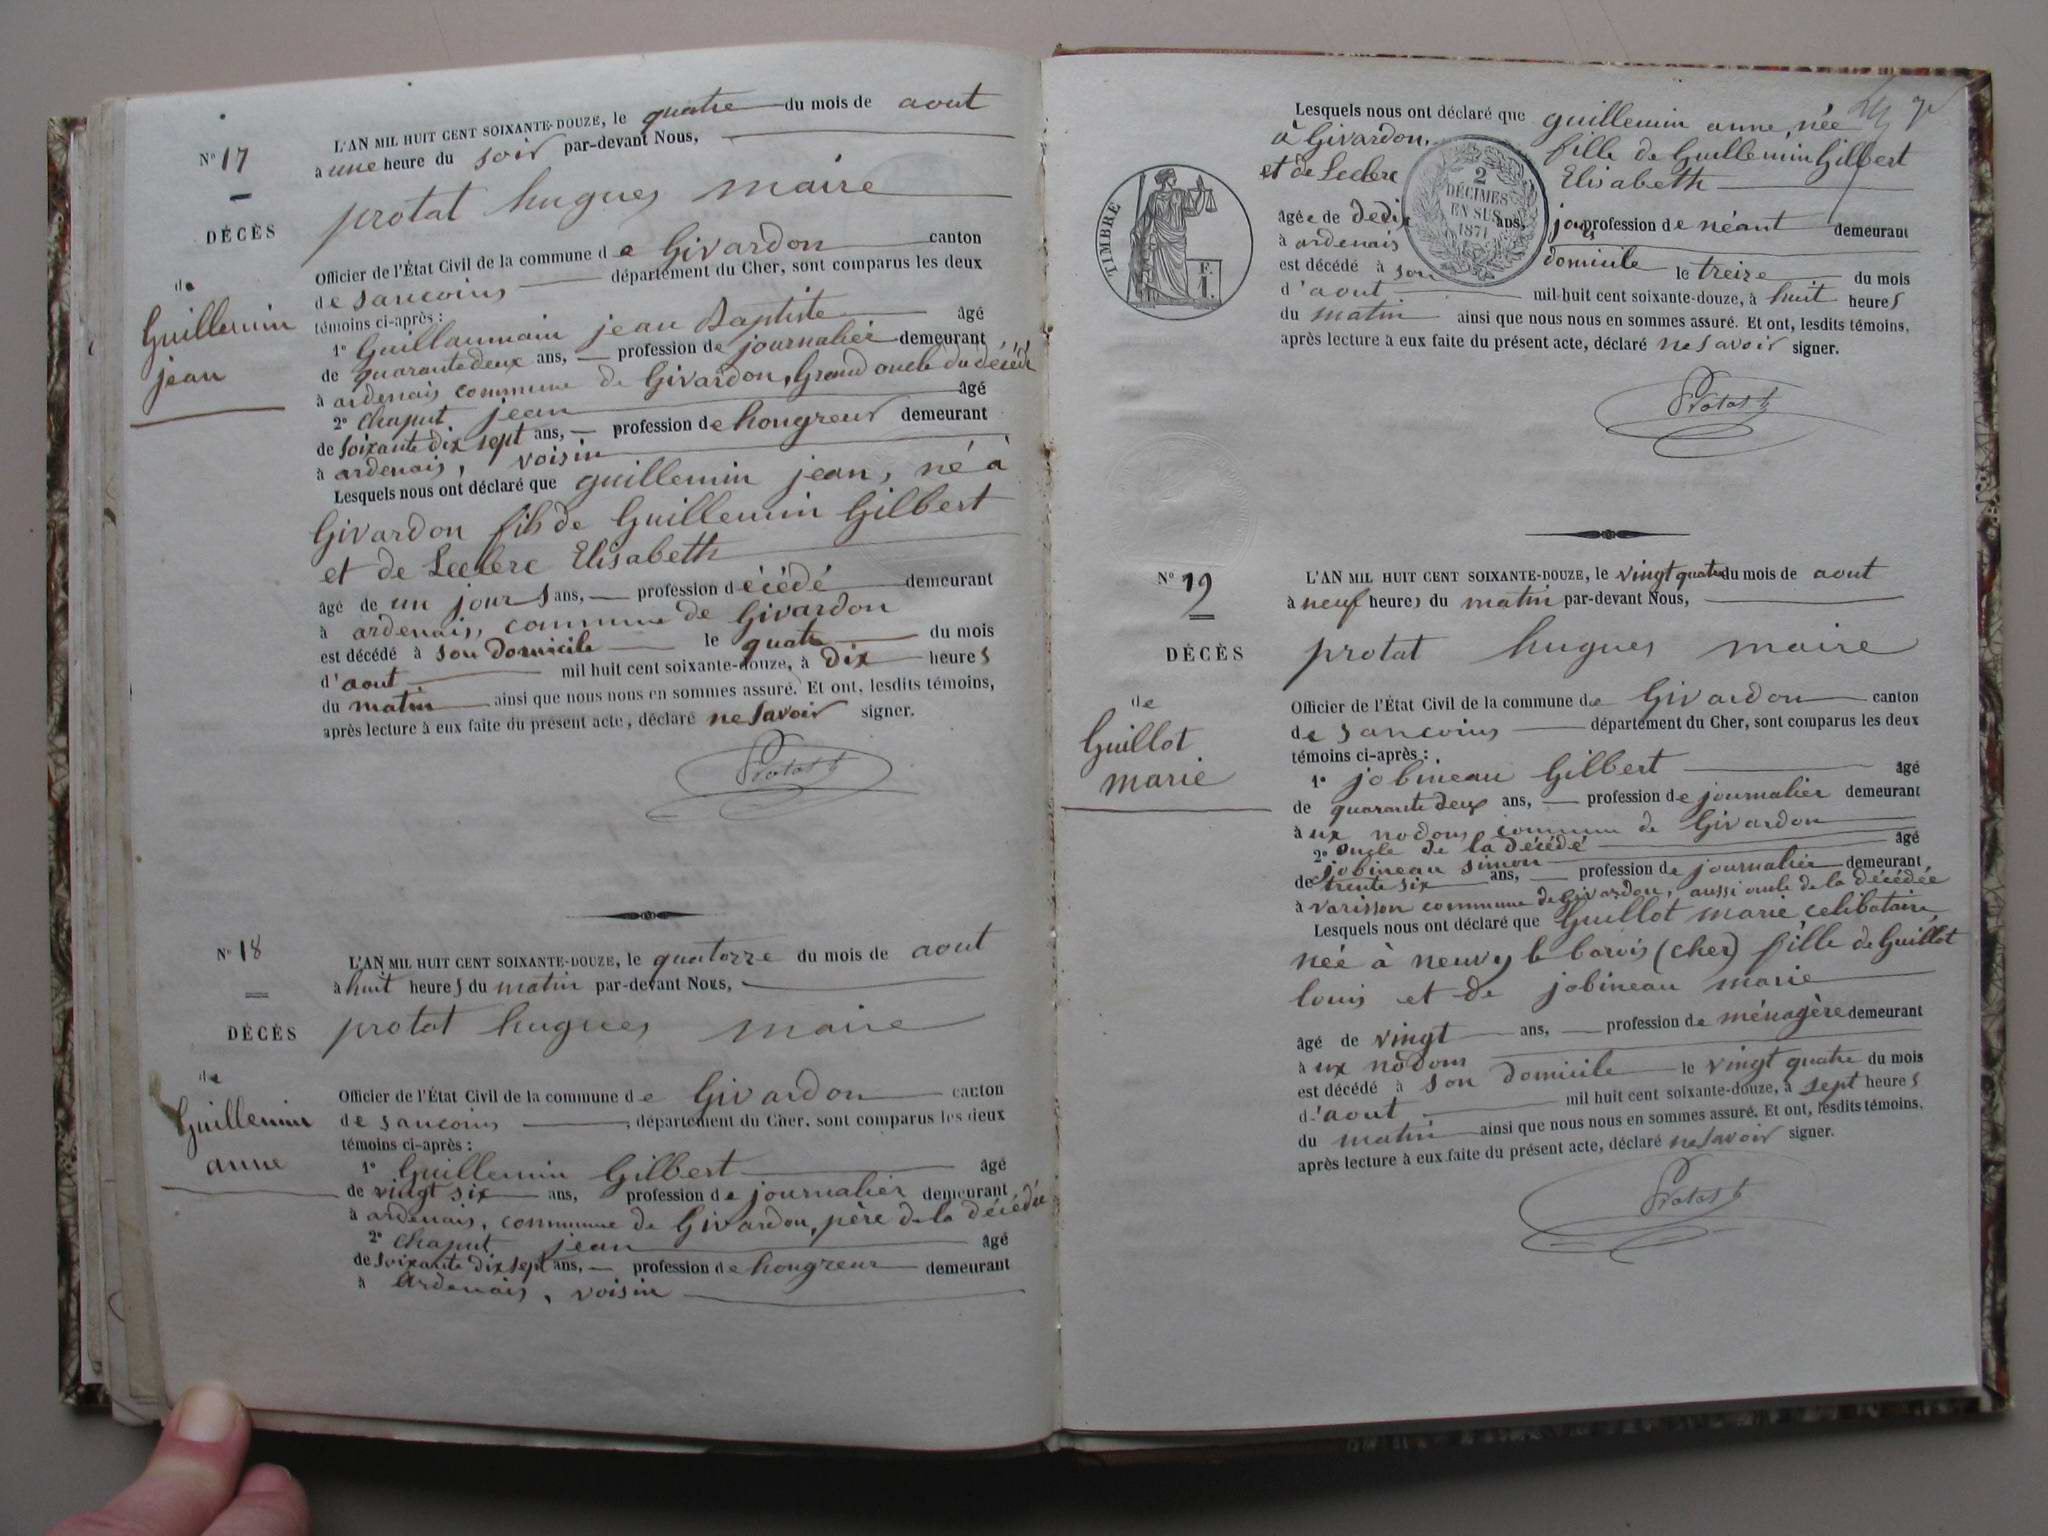 N° 17
DÉCÈS
de
Guillemin
jean
L'AN MIL HUIT CENT SOIXANTE-DOUZE, le quatre du mois de aout
à une heure du soir par-devant Nous,
protat hugues maire
Officier de l'État Civil de la commune de Givardon canton
de sancoins département du Cher, sont comparus les deux
témoins ci-après :
1° Guillaumain jean Baptiste âgé
de quarante deux ans, profession de journalier demeurant
à ardenais commune de Givardon, Grand oncle du décédé
2° chaput jean âgé
de soixante dix sept ans, profession de hongreur demeurant
à ardenais, voisin
Lesquels nous ont déclaré que guillemin jean, né à
Givardon fils de Guillemin Gilbert
et de Leclerc Elisabeth
âgé de un jour ans, profession décédé demeurant
à ardenais, commune de Givardon
est décédé à son domicile le quatre du mois
d'aout mil huit cent soixante-douze, à dix heures
du matin ainsi que nous nous en sommes assuré. Et ont, lesdits témoins,
après lecture à eux faite du présent acte, déclaré ne savoir signer.
Protat h
N° 18
DÉCÈS
de
Guillemin
anne
L'AN MIL HUIT CENT SOIXANTE-DOUZE, le quatorze du mois de aout
à huit heures du matin par-devant Nous,
protat hugues maire
Officier de l'État Civil de la commune de Givardon canton
de sancoins département du Cher, sont comparus les deux
témoins ci-après :
1° Guillemin Gilbert âgé
de vingt six ans, profession de journalier demeurant
à ardenais, commune de Givardon, père de la décédée
2° chaput jean âgé
de soixante dix sept ans, profession de hongreur demeurant
à Ardenais, voisin
Lesquels nous ont déclaré que guillemin anne, née
à Givardon, fille de Guillemin Gilbert
et de Leclerc Elisabeth
TIMBRE
F.
1.
2
DÉCIMES
EN SUS
1871
âgée de de dix ans, jours profession de néant demeurant
à ardenais
est décédé à son domicile le treize du mois
d'aout mil huit cent soixante-douze, à huit heures
du matin ainsi que nous nous en sommes assuré. Et ont, lesdits témoins,
après lecture à eux faite du présent acte, déclaré ne savoir signer.
Protat h
N° 19
DÉCÈS
de
Guillot
marie
L'AN MIL HUIT CENT SOIXANTE-DOUZE, le vingt quatre du mois de aout
à neuf heures du matin par-devant Nous,
protat hugues maire
Officier de l'État Civil de la commune de Givardon canton
de sancoins département du Cher, sont comparus les deux
témoins ci-après :
1° jobineau Gilbert âgé
de quarante deux ans, profession de journalier demeurant
à ux nodons commune de Givardon
oncle de la décédé
2° jobineau simon âgé
de trente six ans, profession de journalier demeurant
à varisson commune de Givardon, aussi oncle de la décédée
Lesquels nous ont déclaré que Guillot marie celibataire,
née à neuvy le barois (cher) fille de Guillot
louis et de jobineau marie
âgé de vingt ans, profession de ménagère demeurant
à ux nodons
est décédé à son domicile le vingt quatre du mois
d'aout mil huit cent soixante-douze, à sept heures
du matin ainsi que nous nous en sommes assuré. Et ont, lesdits témoins,
après lecture à eux faite du présent acte, déclaré ne savoir signer.
Protat h